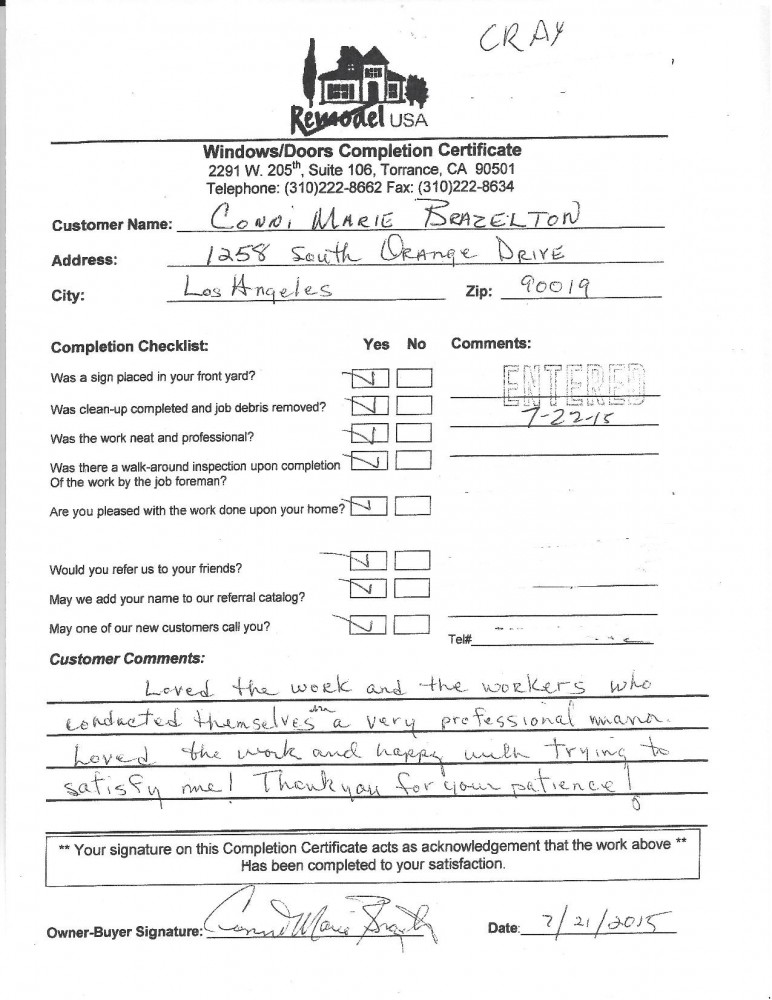 CRAY
Remodel USA
Windows/Doors Completion Certificate
2291 W. 205th, Suite 106, Torrance, CA 90501
Telephone: (310)222-8662 Fax: (310)222-8634
Customer Name: CONNi MARIE BRAZELTON
Address: 1258 South ORANGE DRIVE
City: Los Angeles Zip: 90019
Completion Checklist: Yes No Comments:
Was a sign placed in your front yard?
ENTERED
Was clean-up completed and job debris removed?
7-22-15
Was the work neat and professional?
Was there a walk-around inspection upon completion
Of the work by the job foreman?
Are you pleased with the work done upon your home?
Would you refer us to your friends?
May we add your name to our referral catalog?
May one of our new customers call you?
Tel#
Customer Comments:
Loved the work and the workers who
conducted themselves in a very professional manor.
Loved the work and happy with trying to
satisfy me! Thank you for your patience!
** Your signature on this Completion Certificate acts as acknowledgement that the work above **
Has been completed to your satisfaction.
Owner-Buyer Signature: Conni Marie Brazelton Date: 7/21/2015